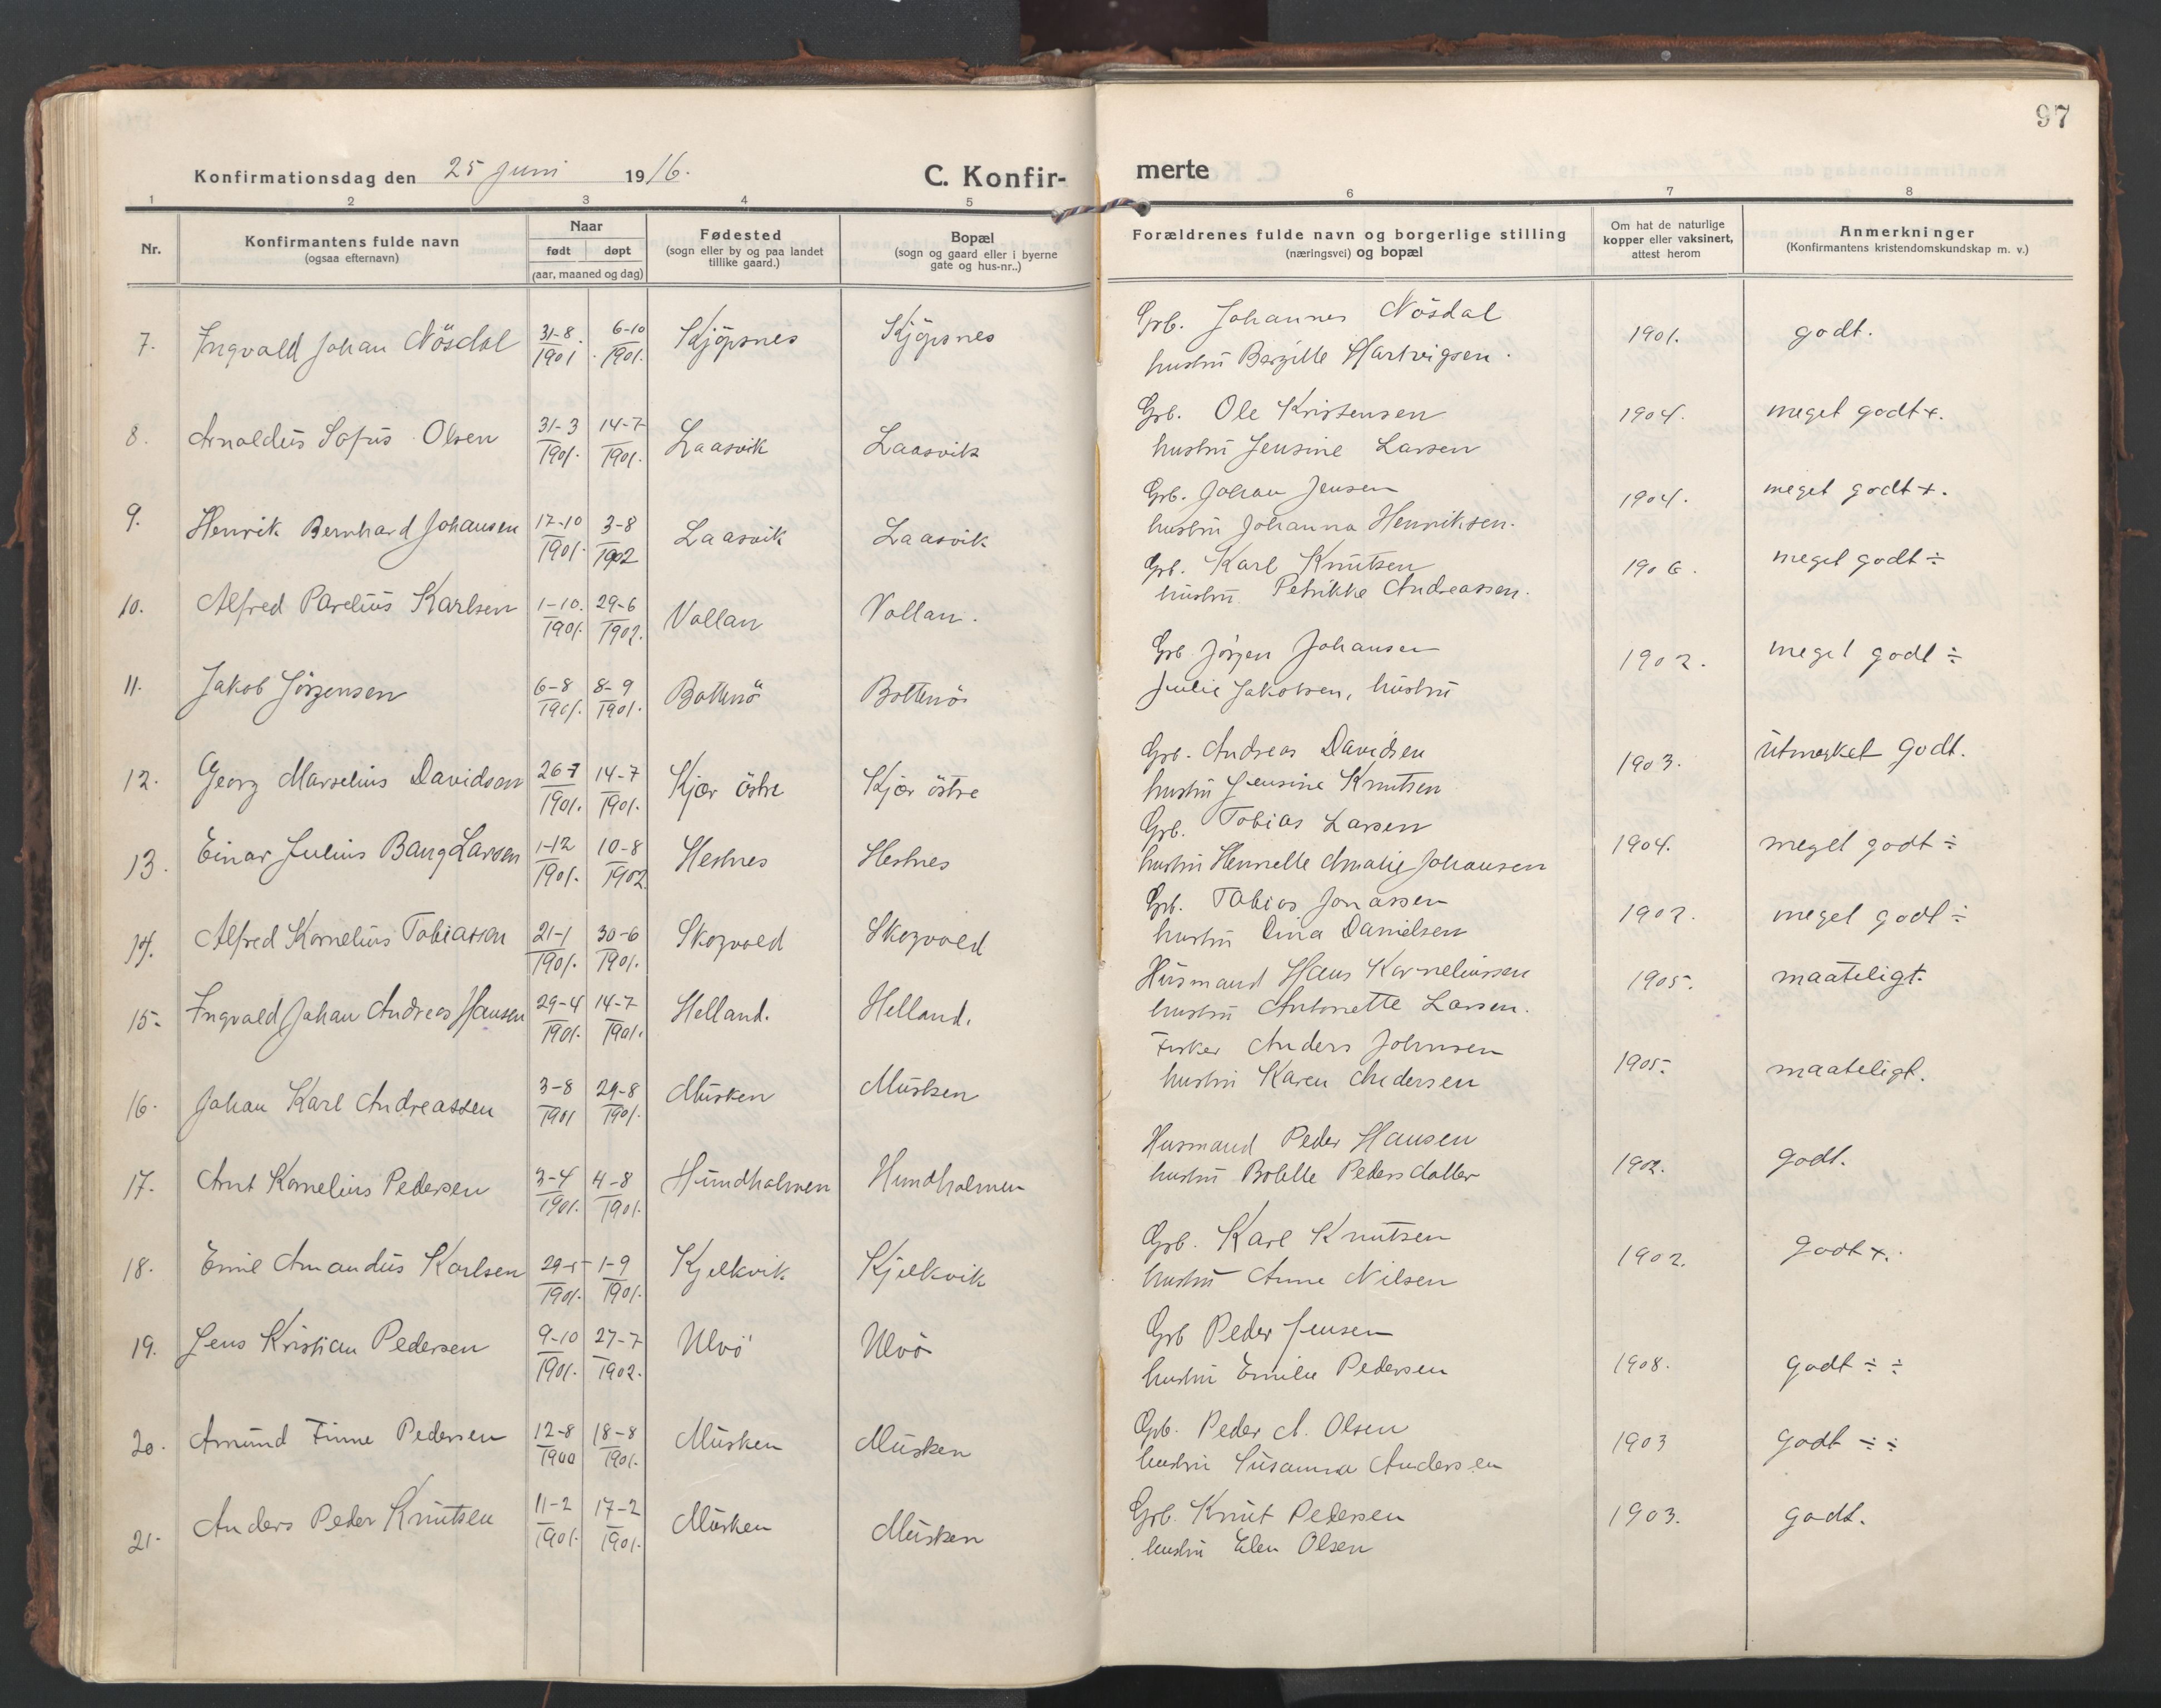 97
Konfirmationsdag den 25 juni 1916.
C. Konfir-
merte
1 2 3 4 5 6 7 8
Nr.
Konfirmantens fulde navn
(ogsaa efternavn)
Naar
født døpt
(aar, maaned og dag)
Fødested
(sogn eller by og paa landet
tillike gaard.)
Bopæl
(sogn og gaard eller i byerne
gate og hus-nr..)
Forældrenes fulde navn og borgerlige stilling
(næringsvei) og bopæl
Om hat de naturlige
kopper eller vaksinert,
attest herom
Anmerkninger
(Konfirmantens kristendomskundskap m. v.)
7. Ingvald Johan Nösdal 31-8 1901. 6-10 1901. Kjöpsnes Kjöpsnes
Grb. Johannes Nösdal
hustrŭ Bergitte Hartvigsen. 1901. godt.
8. Arnoldŭs Sofŭs Olsen 31-3 1901. 14-7 1901. Laasvik Laasvik
Grb. Ole Kristensen
hustrŭ Jensine Larsen 1904. meget godt +.
9. Henrik Bernhard Johansen 17-10 1901. 3-8 1902 Laasvik Laasvik
Grb. Johan Jensen
hustrŭ Johanna Henriksen. 1904. meget godt +.
10. Alfred Parelius Karlsen 1-10. 1901. 29-6 1902. Vollan Vollan.
Grb. Karl Knŭtsen
hustrŭ Petrikke Andreassen. 1906. meget godt ÷
11. Jakob Jörgensen 6-8 1901. 8-9 1901. Bottenö Bottenös
Grb. Jörgen Johansen
Julie Jakobsen, hŭstrŭ 1902. meget godt ÷
12. Georg Marselius Davidsen 26-7 1901. 14-7 1901. Kjær östre Kjær östre
Grb. Andreas Davidsen
hustrŭ Jensine Knutsen 1903. ŭtmerket godt.
13. Einar Julius Bang Larsen 1-12 1901. 10-8 1902 Hestnes Hestnes
Grb. Tobias Larsen
hustrŭ Henrette Amalie Johansen 1904. meget godt ÷
14. Alfred Kornelius Tobiassen 21-1 1901. 30-6 1901. Skogvold Skogvold
Grb. Tobias Jonassen
hustrŭ Dina Danielsen 1902. meget godt ÷
15. Ingvald Johan Andreas Hansen 29-4 1901. 14-7 1901. Helland. Helland.
Hŭsmand Hans Korneliussen
hustrŭ Antonette Larsen. 1905. maateligt.
16. Johan Karl Andreassen 3-8 1901 29-8 1901. Mŭsken Mŭsken
Fisker Anders Johnsen
hustrŭ Karen Andersen 1905. maateligt.
17. Arnt Kornelius Pedersen 3-4 1901. 4-8 1901. Hŭndholmen Hundholmen
Husmand Peder Hansen
hustrŭ Bolette Pedersdatter 1902. godt.
18. Emil Amandŭs Karlsen 29-5 1901. 1-9 1901. Kjelkvik Kjelkvik
Grb. Karl Knutsen
hustrŭ Anne Nilsen 1902. godt +.
19. Jens Kristian Pedersen 9-10 1901. 27-7 1902. Ulvö Ulvö
Grb Peder Jensen
hustrŭ Emilie Pedersen 1908. godt ÷ ÷
20. Amŭnd Finne Pedersen 12-8 1900 18-8 1901. Mŭsken Mŭsken
Grb. Peder A. Olsen
hustrŭ Sŭsanna Andersen 1903 godt ÷ ÷
21. Anders Peder Knŭtsen 11-2 1901. 17-2 1901. Mŭsken Mŭsken
Grb. Knŭt Pedersen
hustrŭ Elen Olsen 1903. godt.